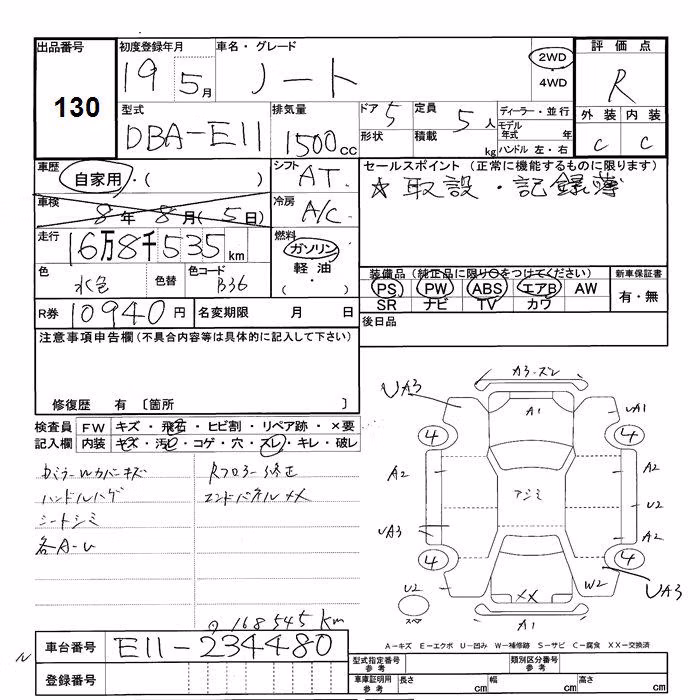 出品番号 初度登録年月 車名・グレード 評価点
130 19 5月 ノート 2WD 4WD R
型式 排気量 ドア 5 定員 5人 ディーラー・並行 外装 内装
DBA-E11 1500cc 形状 積載 kg モデル年式 年 ハンドル 左・右 C C
車歴 自家用・( ) シフト AT セールスポイント (正常に機能するものに限ります)
☆取説・記録簿
車検 8年8月(5日) 冷房 A/C
走行 16万8千535km 燃料 ガソリン 軽油 (・)
色 水色 色替 色コード B36
装備品(純正品に限り○をつけてください) 新車保証書
PS PW ABS エアB AW 有・無
SR ナビ TV カワ
R券 10940円 名変期限 月 日 後日品
注意事項申告欄(不具合内容等は具体的に記入して下さい)
修復歴 有 〔箇所 〕
検査員 FW キズ・飛石・ヒビ割・リペア跡・×要
記入欄 内装 キズ・汚レ・コゲ・穴・スレ・キレ・破レ
ハンドルハゲ エンドパネルXX
シートシミ
各A-U
168545km
車台番号 E11-234480
登録番号
A3・ズレ
UA3 A1 UA1
4 4
A2 A2
アジミ U2
UA3 A2
4 4
U2 XX W2 UA3
スペア A1
A-キズ E-エクボ U-凹み W-補修跡 S-サビ C-腐食 XX-交換済
型式指定番号 参考 類別区分番号 参考
車庫証明用 参考 長さ cm 幅 cm 高さ cm